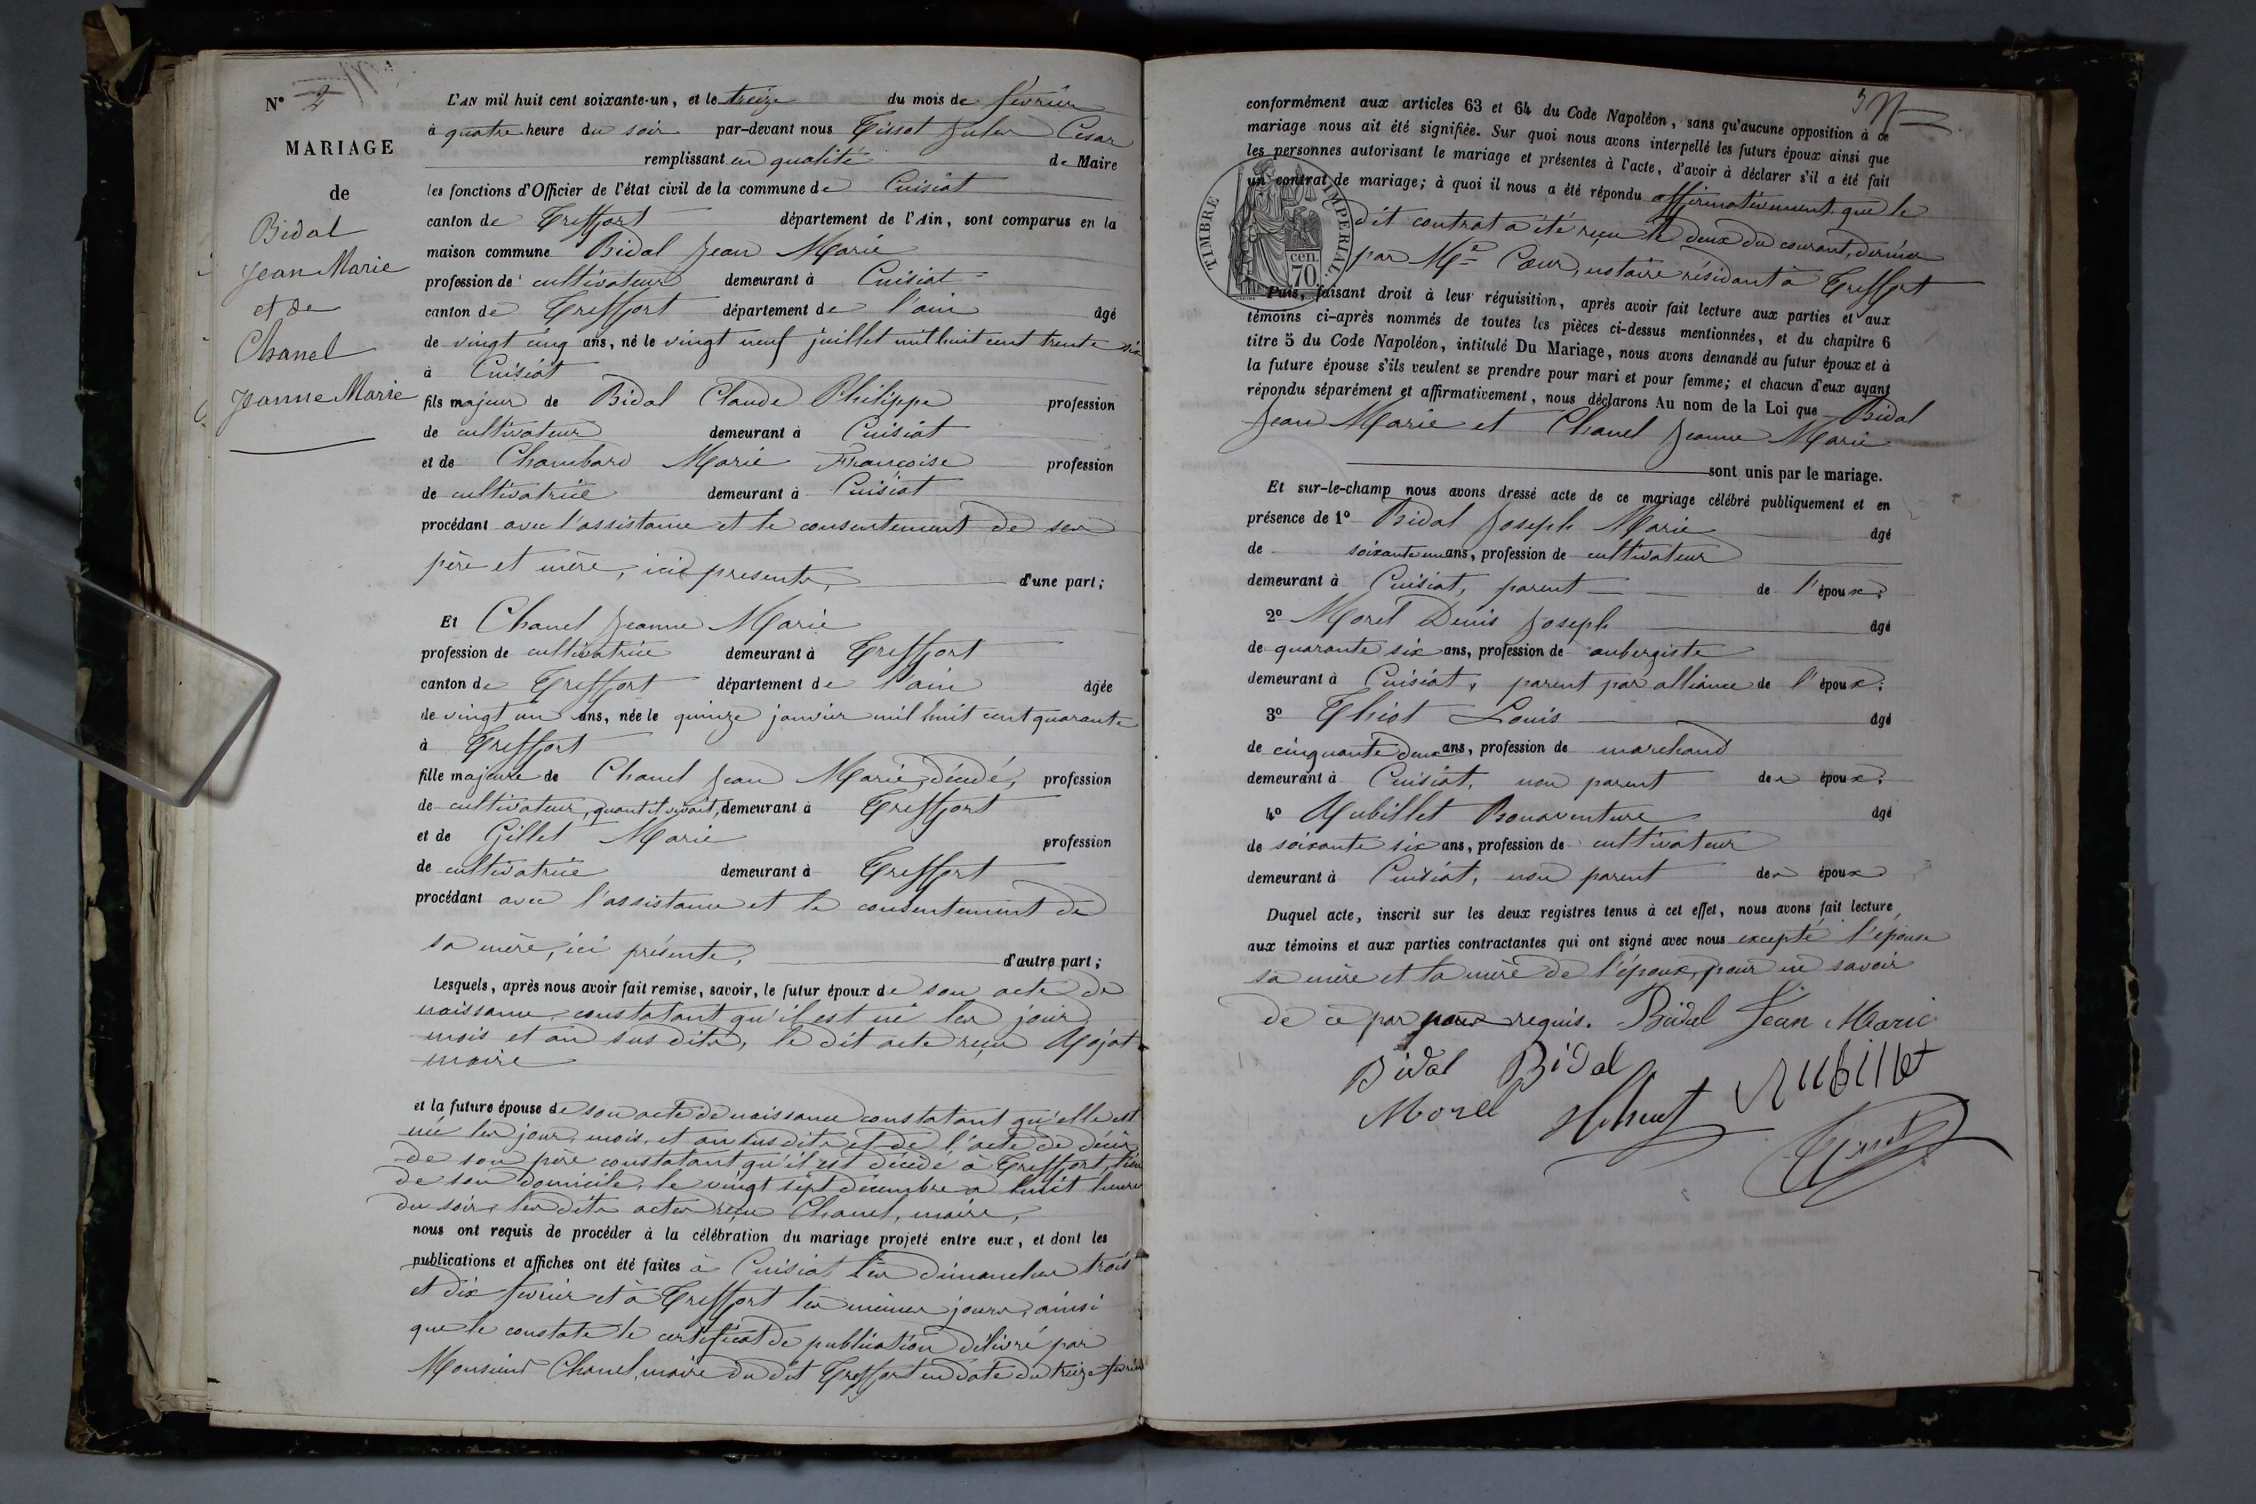 N° 2
MARIAGE
de
Bidal
Jean Marie
et de
Chanel
Jeanne Marie
L'AN mil huit cent soixante-un, et le treize du mois de février
à quatre heure du soir par-devant nous Tissot Jules César
remplissant en qualité de Maire
les fonctions d'Officier de l'état civil de la commune de Cuisiat
canton de Treffort département de l'Ain, sont comparus en la
maison commune Bidal Jean Marie
profession de cultivateur demeurant à Cuisiat
canton de Treffort département de l'ain âgé
de vingt cinq ans, né le vingt neuf juillet mil huit cent trente six
à Cuisiat
fils majeur de Bidal Claude Philippe profession
de cultivateur demeurant à Cuisiat
et de Chambard Marie Françoise profession
de cultivatrice demeurant à Cuisiat
procédant avec l'assistance et le consentement de ses
père et mère, ici présents, d'une part;
Et Chanel Jeanne Marie
profession de cultivatrice demeurant à Treffort
canton de Treffort département de l'ain âgée
de vingt un ans, née le quinze janvier mil huit cent quarante
à Treffort
fille majeure de Chanel Jean Marie, décédé, profession
de cultivateur, quant il vivait, demeurant à Treffort
et de Gillet Marie profession
de cultivatrice demeurant à Treffort
procédant avec l'assistance et le consentement de
sa mère, ici présente, d'autre part;
Lesquels, après nous avoir fait remise, savoir, le futur époux de son acte de
naissance, constatant qu'il est né les jour,
mois et an sus dits, le dit acte reçu
maire
et la future épouse de son acte de naissance constatant qu'elle est
née les jour, mois, et an sus dits et de l'acte de décès
de son père constatant qu'il est décédé à Treffort, lieu
de son domicile, le vingt sept décembre à huit heures
du soir, les dits actes reçu Chanel, maire,
nous ont requis de procéder à la célébration du mariage projeté entre eux, et dont les
publications et affiches ont été faites à Cuisiat les dimanches trois
et dix février et à Treffort les mêmes jours, ainsi
que le constate le certificat de publication délivré par
Monsieur Chanel, maire du dit Treffort en date du treize février
conformément aux articles 63 et 64 du Code Napoléon, sans qu'aucune opposition à ce
mariage nous ait été signifiée. Sur quoi nous avons interpellé les futurs époux ainsi que
les personnes autorisant le mariage et présentes à l'acte, d'avoir à déclarer s'il a été fait
un contrat de mariage; à quoi il nous a été répondu affirmativement que le
dit contrat a été reçu le deux du courant, dernier
par Me Cœur, notaire résidant à Treffort
TIMBRE IMPÉRIAL.
cen.
70
Puis, faisant droit à leur réquisition, après avoir fait lecture aux parties et aux
témoins ci-après nommés de toutes les pièces ci-dessus mentionnées, et du chapitre 6
titre 5 du Code Napoléon, intitulé Du Mariage, nous avons demandé au futur époux et à
la future épouse s'ils veulent se prendre pour mari et pour femme; et chacun d'eux ayant
répondu séparément et affirmativement, nous déclarons Au nom de la Loi que Bidal
Jean Marie et Chanel Jeanne Marie
sont unis par le mariage.
Et sur-le-champ nous avons dressé acte de ce mariage célébré publiquement et en
présence de 1° Bidal Joseph Marie âgé
de soixante un ans, profession de cultivateur
demeurant à Cuisiat, parent de l'époux;
2° Morel Denis Joseph âgé
de quarante six ans, profession de aubergiste
demeurant à Cuisiat, parent par alliance de l'époux;
3° Thiot Louis âgé
de cinquante deux ans, profession de marchand
demeurant à Cuisiat, non parent des époux;
4° Rubillet Bonaventure âgé
de soixante six ans, profession de cultivateur
demeurant à Cuisiat, non parent des époux
Duquel acte, inscrit sur les deux registres tenus à cet effet, nous avons fait lecture
aux témoins et aux parties contractantes qui ont signé avec nous excepté l'épouse
sa mère et la mère de l'époux, pour ne savoir
de ce par nous requis. Bidal Jean Marie
Bidal Bidal Rubillet
Morel
Tissot